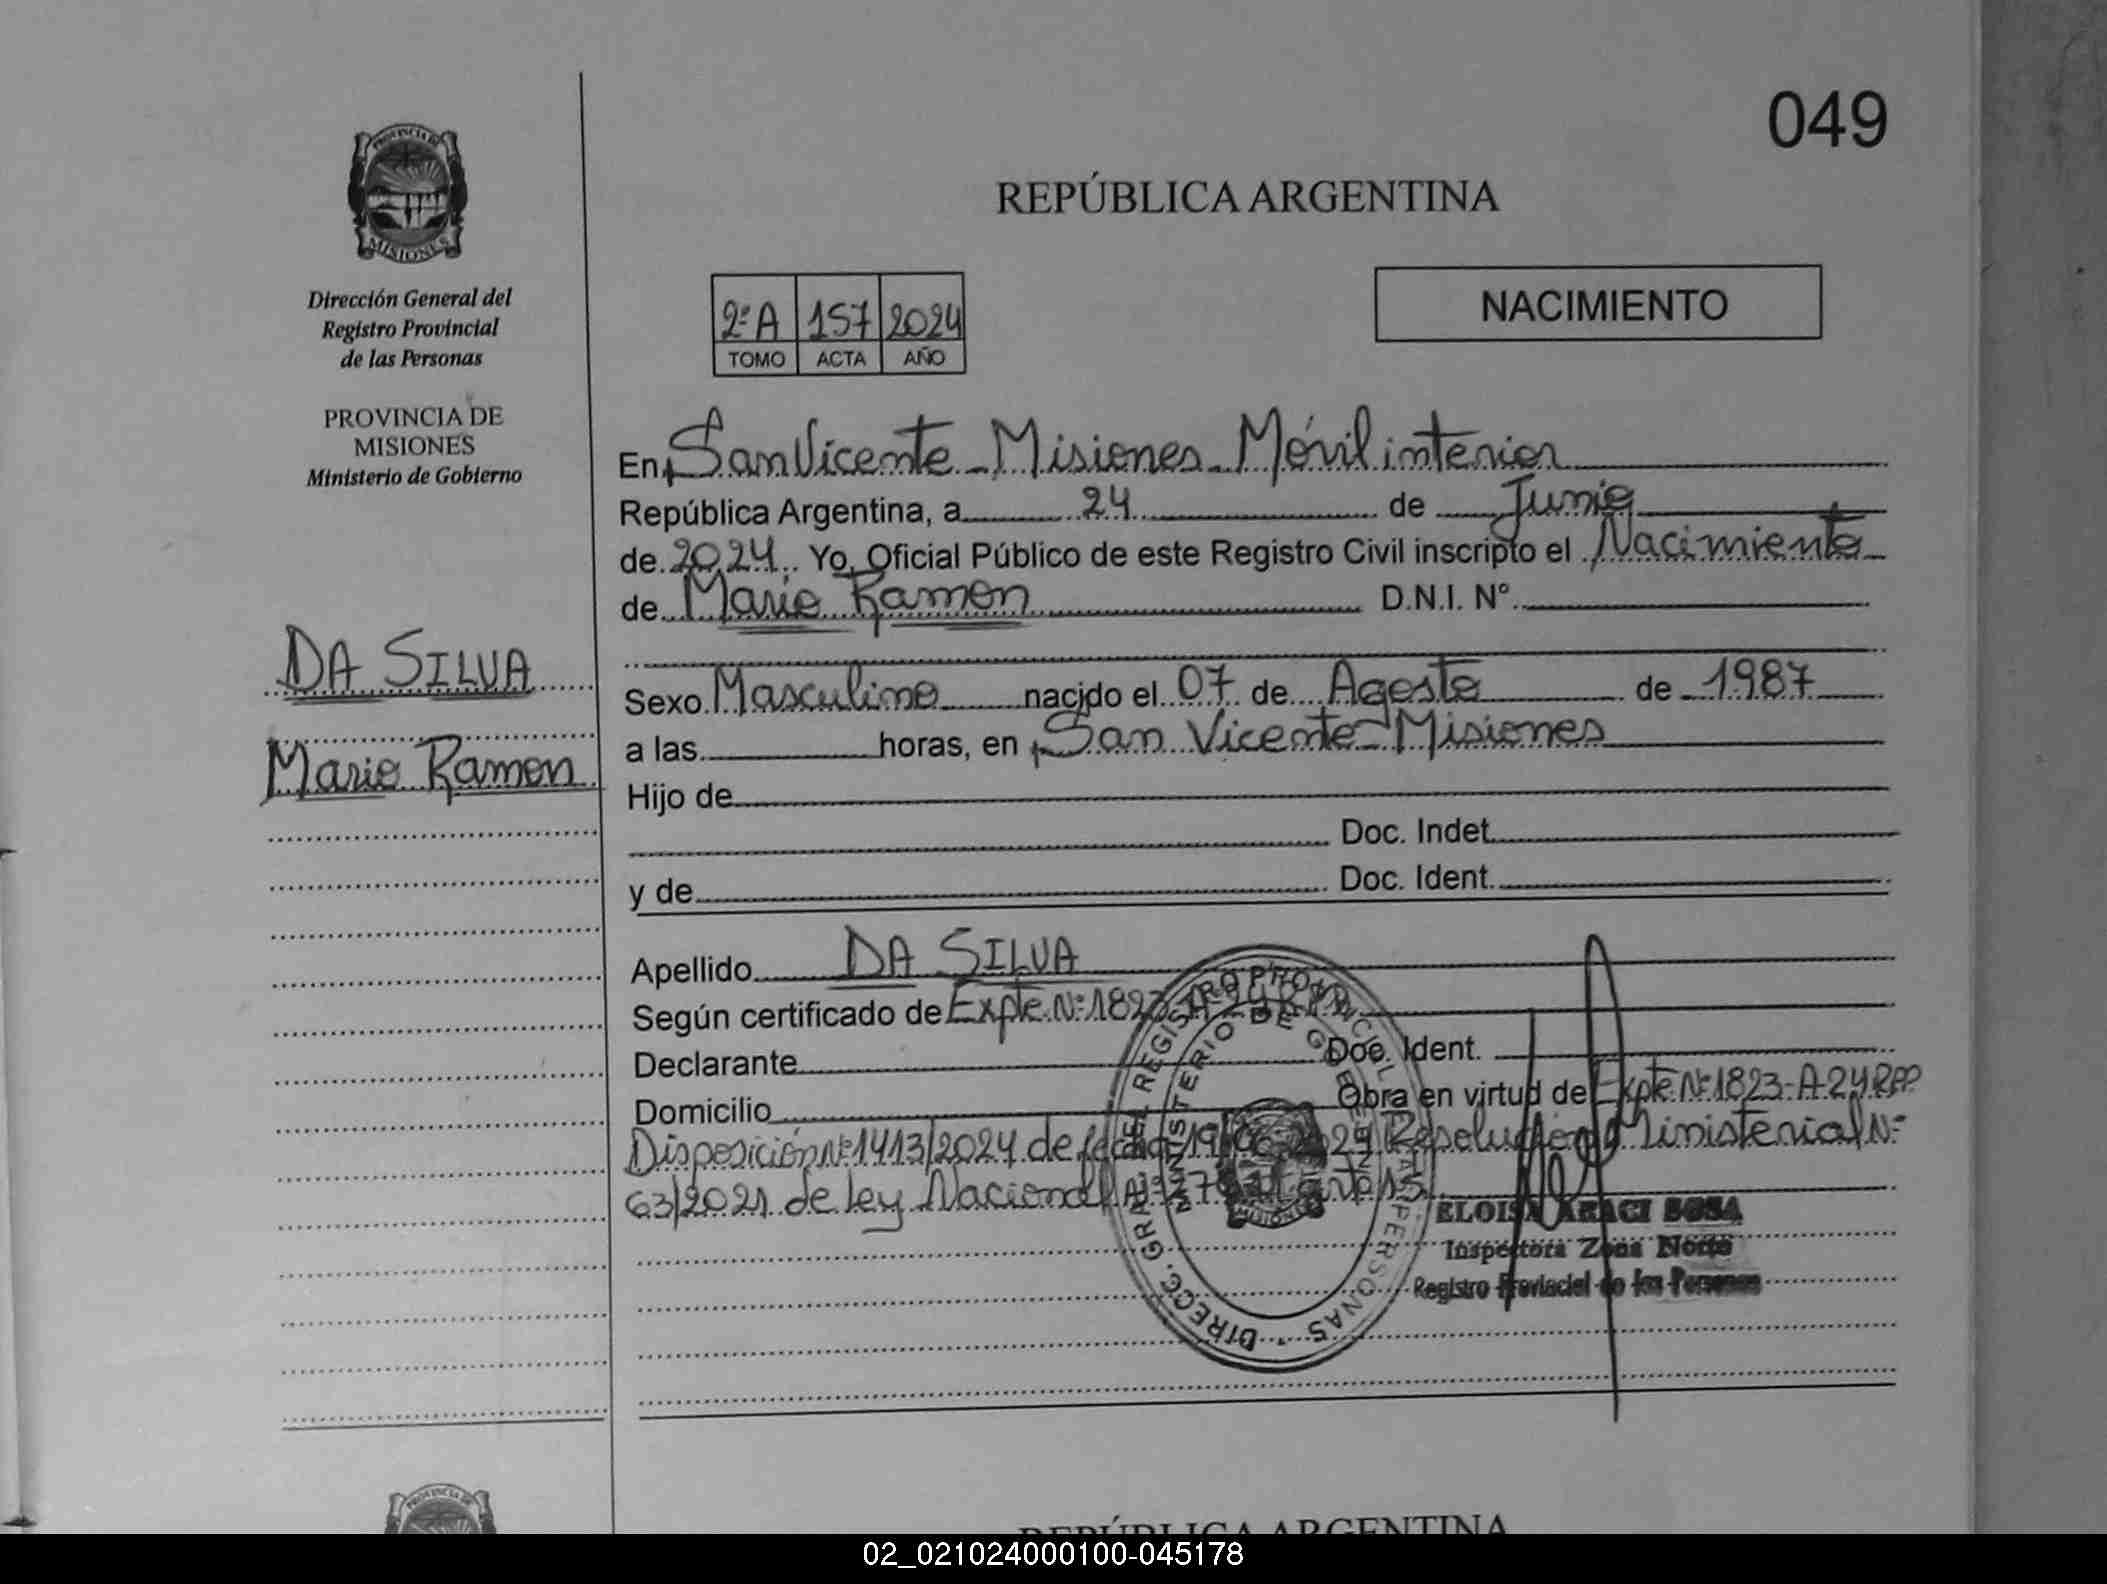 049
PROVINCIA DE
MISIONES
Dirección General del
Registro Provincial
de las Personas
PROVINCIA DE
MISIONES
Ministerio de Gobierno
REPÚBLICA ARGENTINA
2ºA 157 2024
TOMO ACTA AÑO
NACIMIENTO
DA SILVA
Mario Ramon
En San Vicente - Misiones - Móvil interior
República Argentina, a 24 de Junio
de 2024. Yo, Oficial Público de este Registro Civil inscripto el Nacimiento
de Mario Ramon D.N.I. N°
Sexo Masculino nacido el 07 de Agosto de 1987
a las horas, en San Vicente - Misiones
Hijo de
Doc. Indet.
y de Doc. Ident.
Apellido DA SILVA
Según certificado de Expte. Nº 1823-A-24
Declarante Doc. Ident.
Domicilio Obra en virtud de Expte. Nº 1823-A-24 RPP
Disposición Nº 1413/2024 de fecha 19/06/2024 Resolución Ministerial Nº
63/2021 de ley Nacional
DIRECC. GRAL. DEL REGISTRO PROVINCIAL DE LAS PERSONAS
MINISTERIO DE GOBIERNO
MISIONES
ELOISA ARACI SOSA
Inspectora Zona Norte
Registro Provincial de las Personas
PROVINCIA DE
REPÚBLICA ARGENTINA
02_021024000100-045178